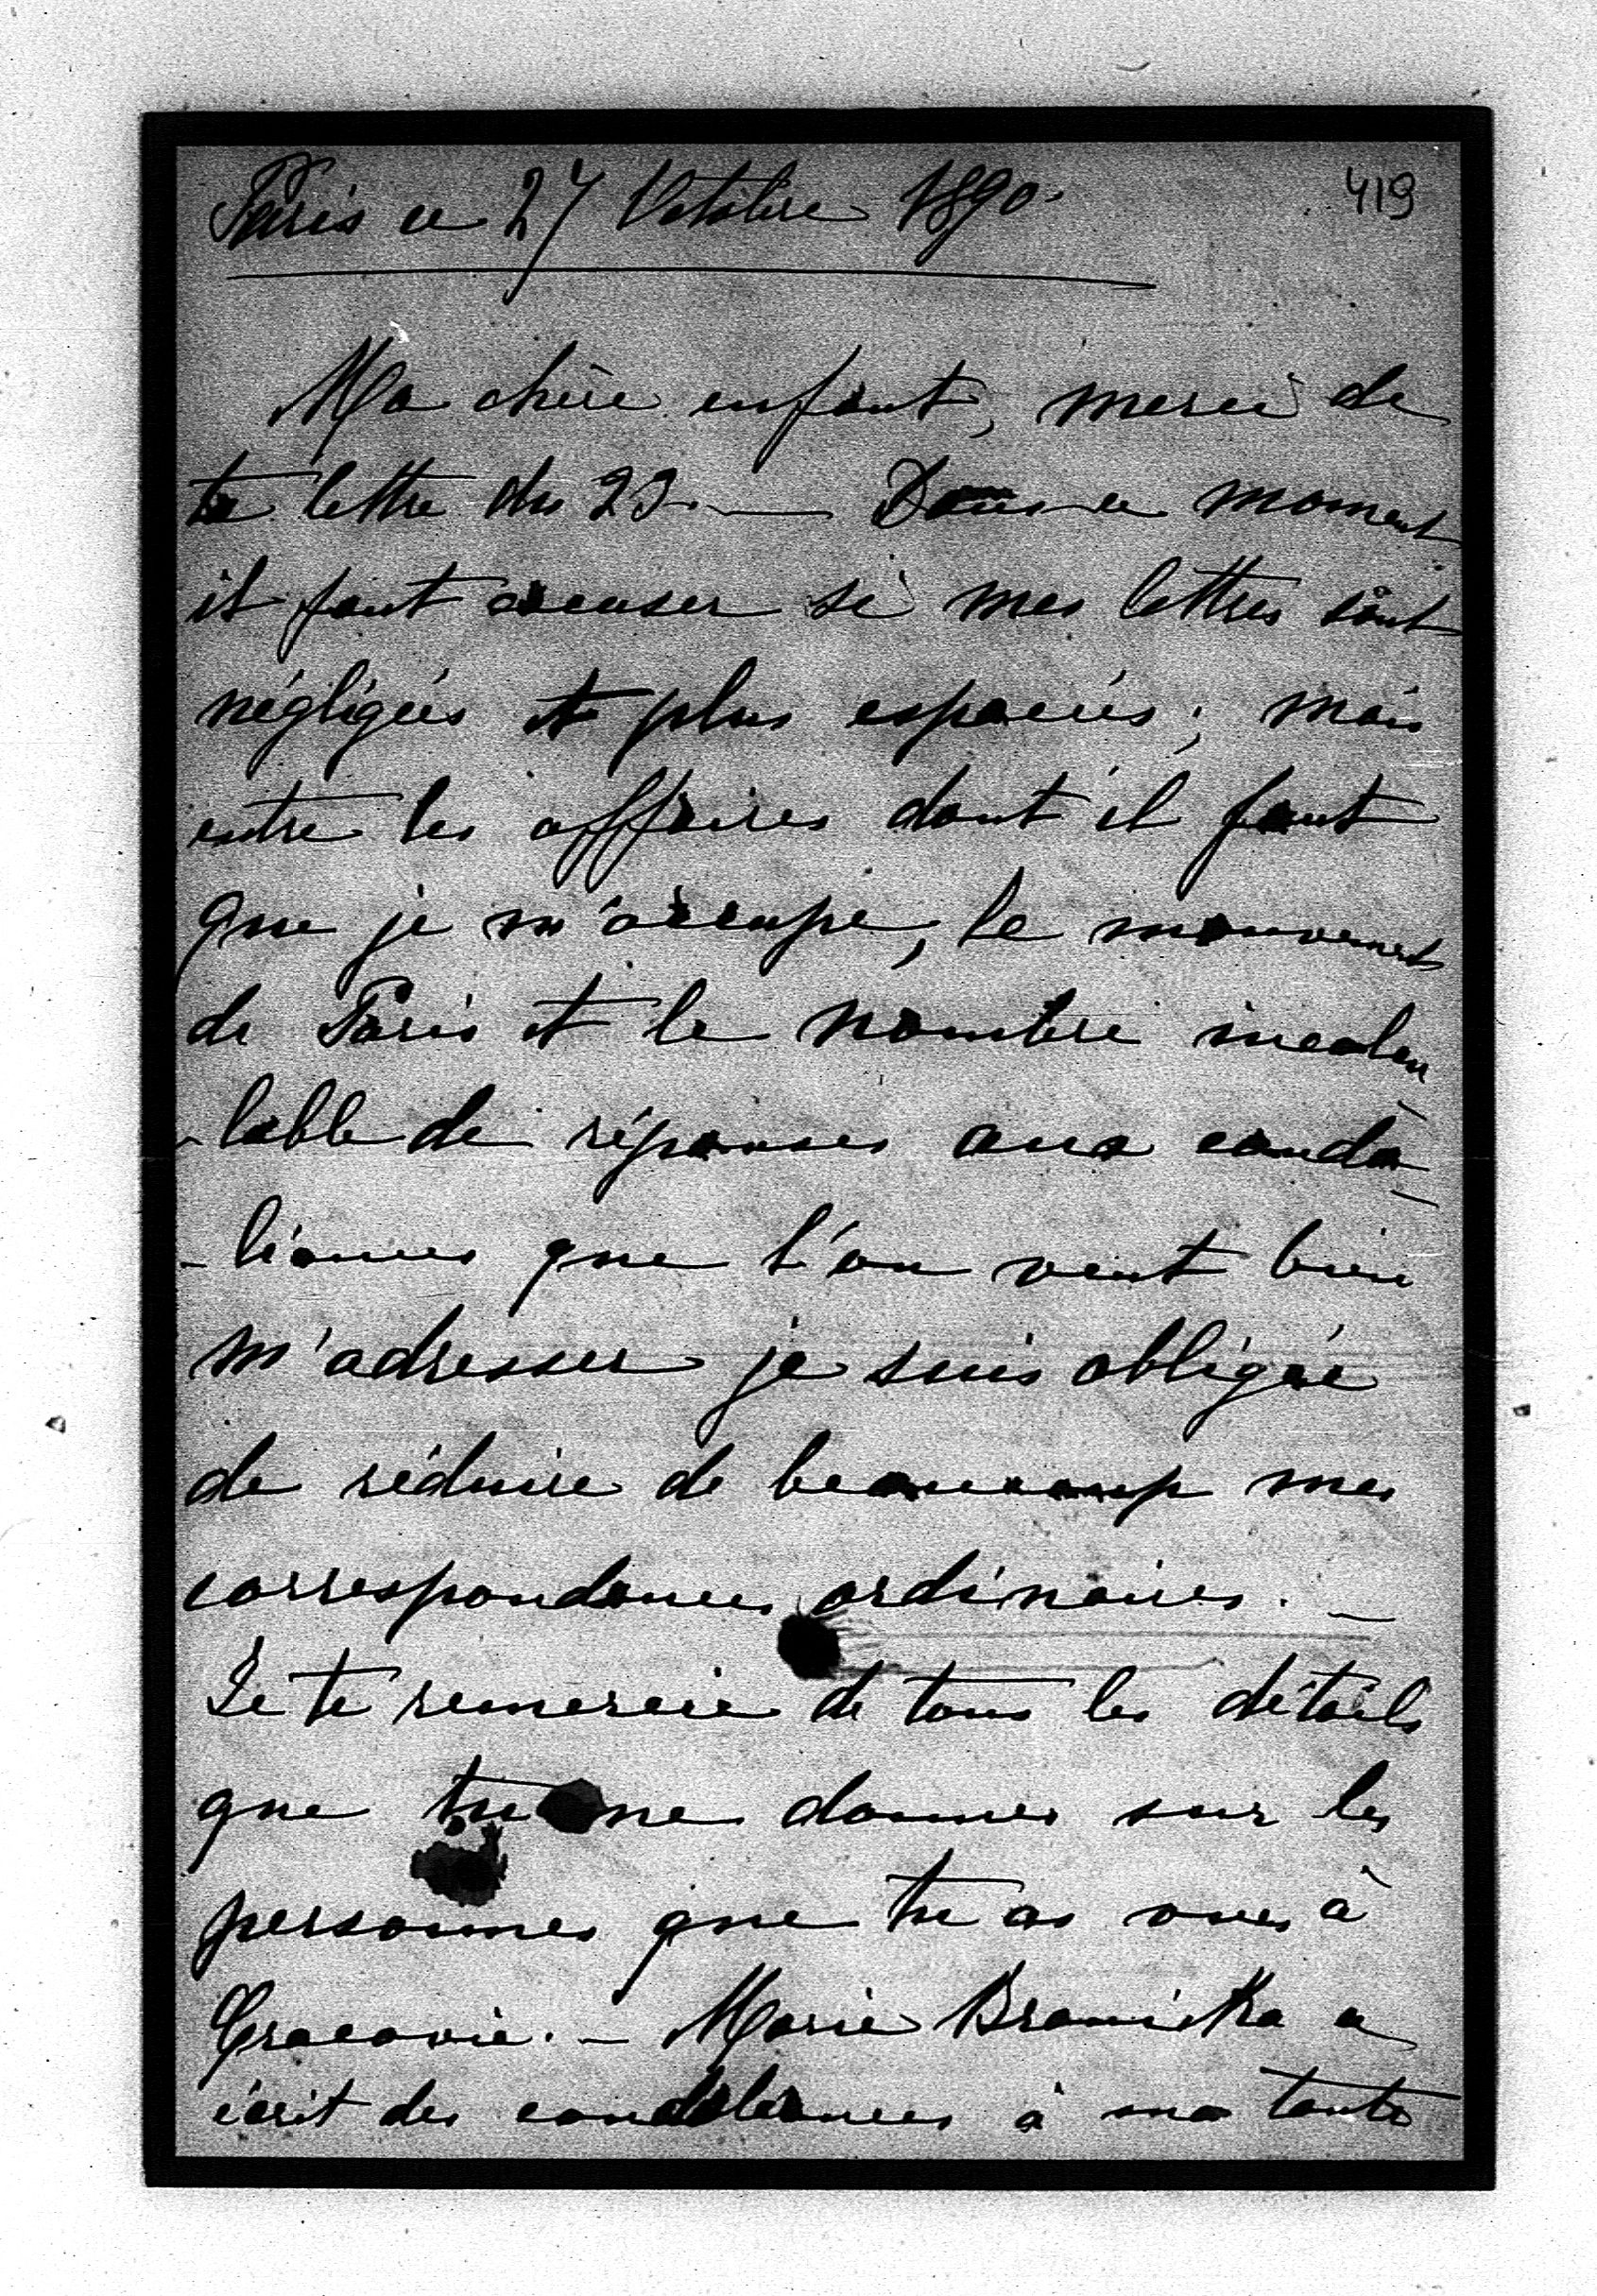 Paris ce 27 Octobre 1890.
419
Ma chère enfant, merci de
ta lettre du 23. — Dans ce moment
il faut excuser si mes lettres sont
négligées et plus espacées; mais
entre les affaires dont il faut
que je m'occupe, le mouvement
de Paris et le nombre incalcu
-lable de réponses aux condo-
-léances que l'on veut bien
m'adresser je suis obligée
de réduire de beaucoup mes
correspondances ordinaires. —
Je te remercie de tous les détails
que tu me donnes sur les
personnes que tu as vues à
Cracovie. — Marie Branicka a
écrit des condoléances à ma tante